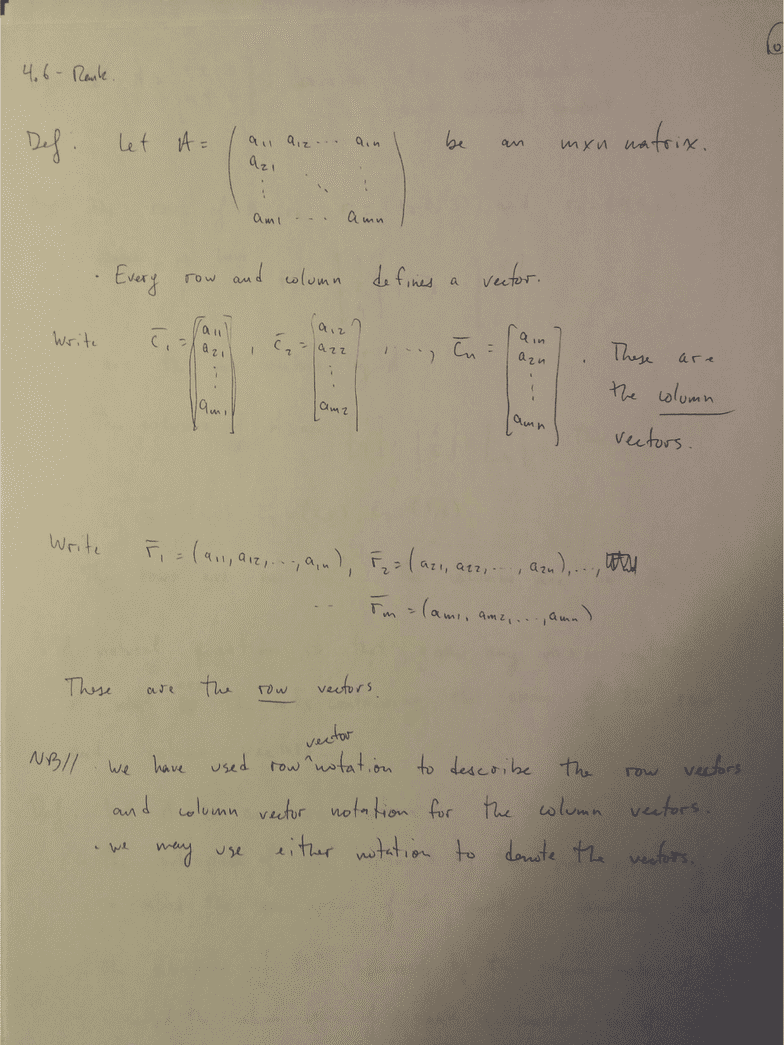 4.6 - Rank.
Def. Let A = ( a11 a12 ... a1n be an mxn matrix.
a21 ⋮ ⋱ ⋮
am1 ... amn )
· Every row and column defines a vector.
Write c̄1 = [a11 a21 ⋮ am1], c̄2 = [a12 a22 ⋮ am2], ..., c̄n = [a1n a2n ⋮ amn]. These are
the column
vectors.
Write r̄1 = (a11, a12, ..., a1n), r̄2 = (a21, a22, ..., a2n), ...,
.. r̄m = (am1, am2, ..., amn)
These are the row vectors.
NB// · We have used row ^vector notation to describe the row vectors
and column vector notation for the column vectors.
· we may use either notation to denote the vectors.